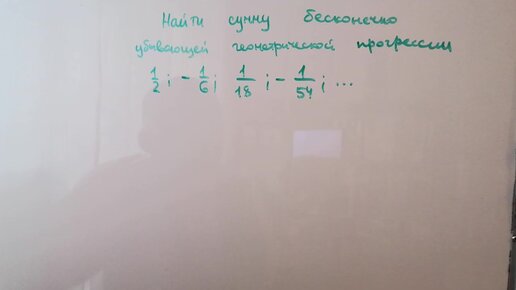 Найти сумму бесконечно
убывающей геометрической прогрессии
1/2; -1/6; 1/18; -1/54; ...